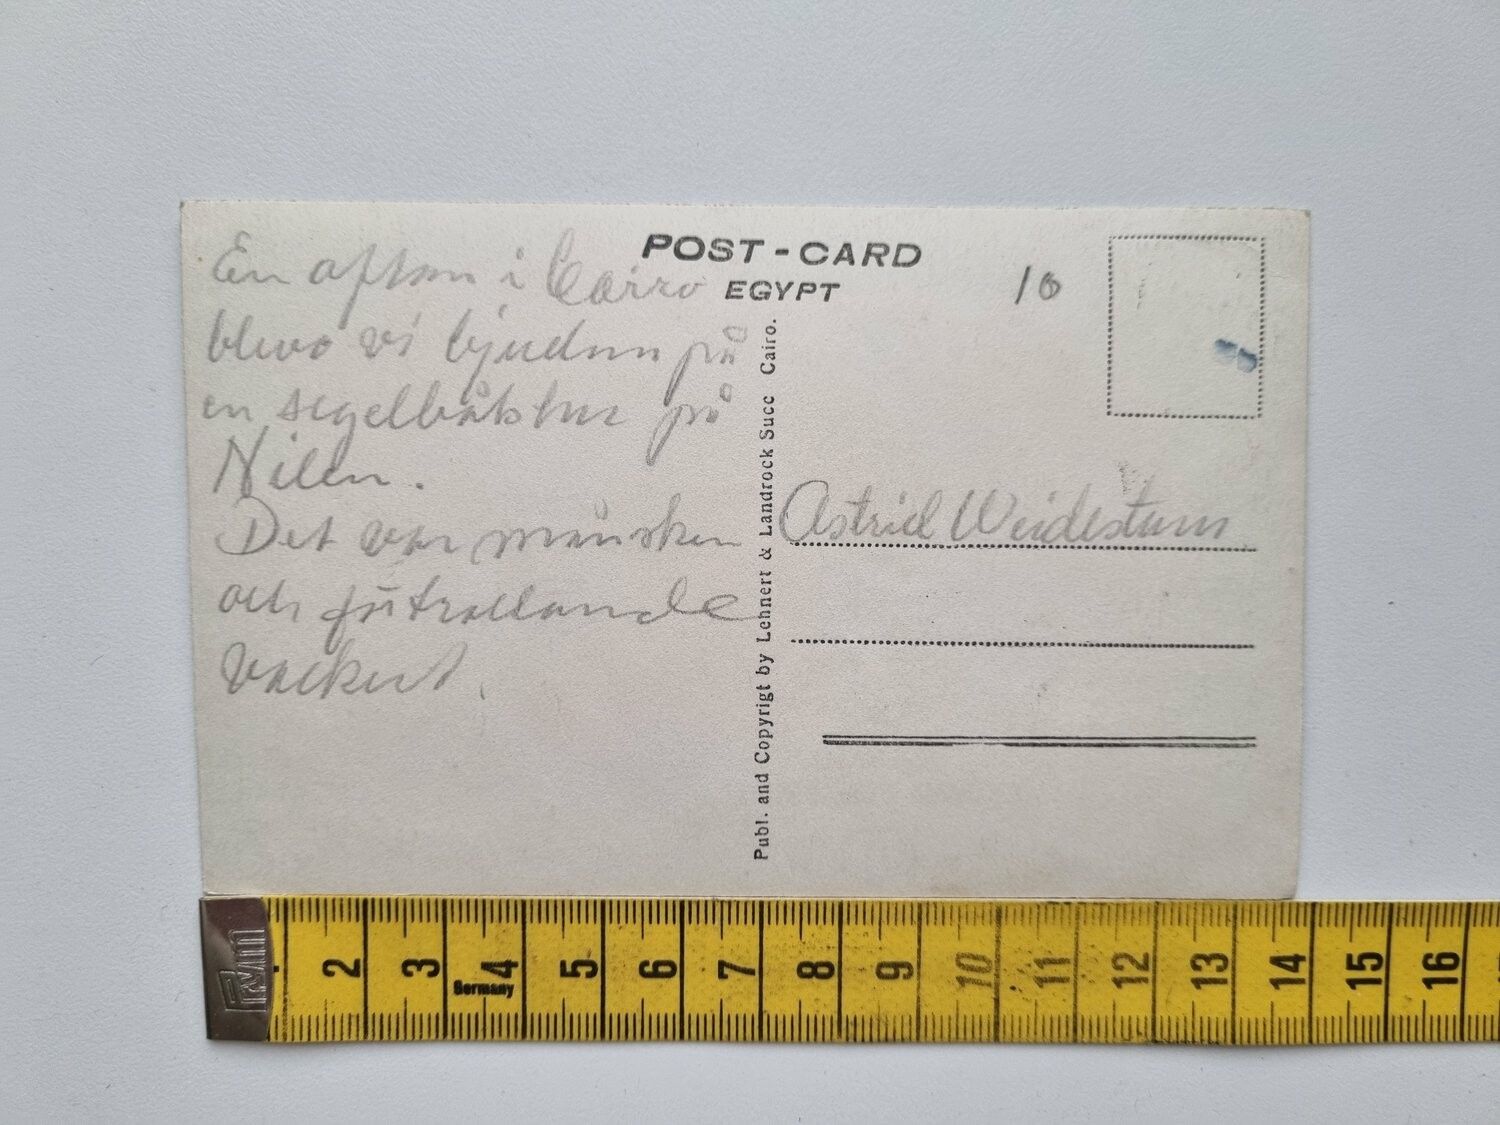 POST-CARD
EGYPT
10
En afton i Cairo
blevo vi bjudna på
en segelbåtstur på
Nilen.
Det var månsken
och förtrollande
vackert.
Publ. and Copyrigt by Lehnert & Landrock Succ Cairo.
Astrid Weidestam
2 3 4 5 6 7 8 9 10 11 12 13 14 15 16
Germany